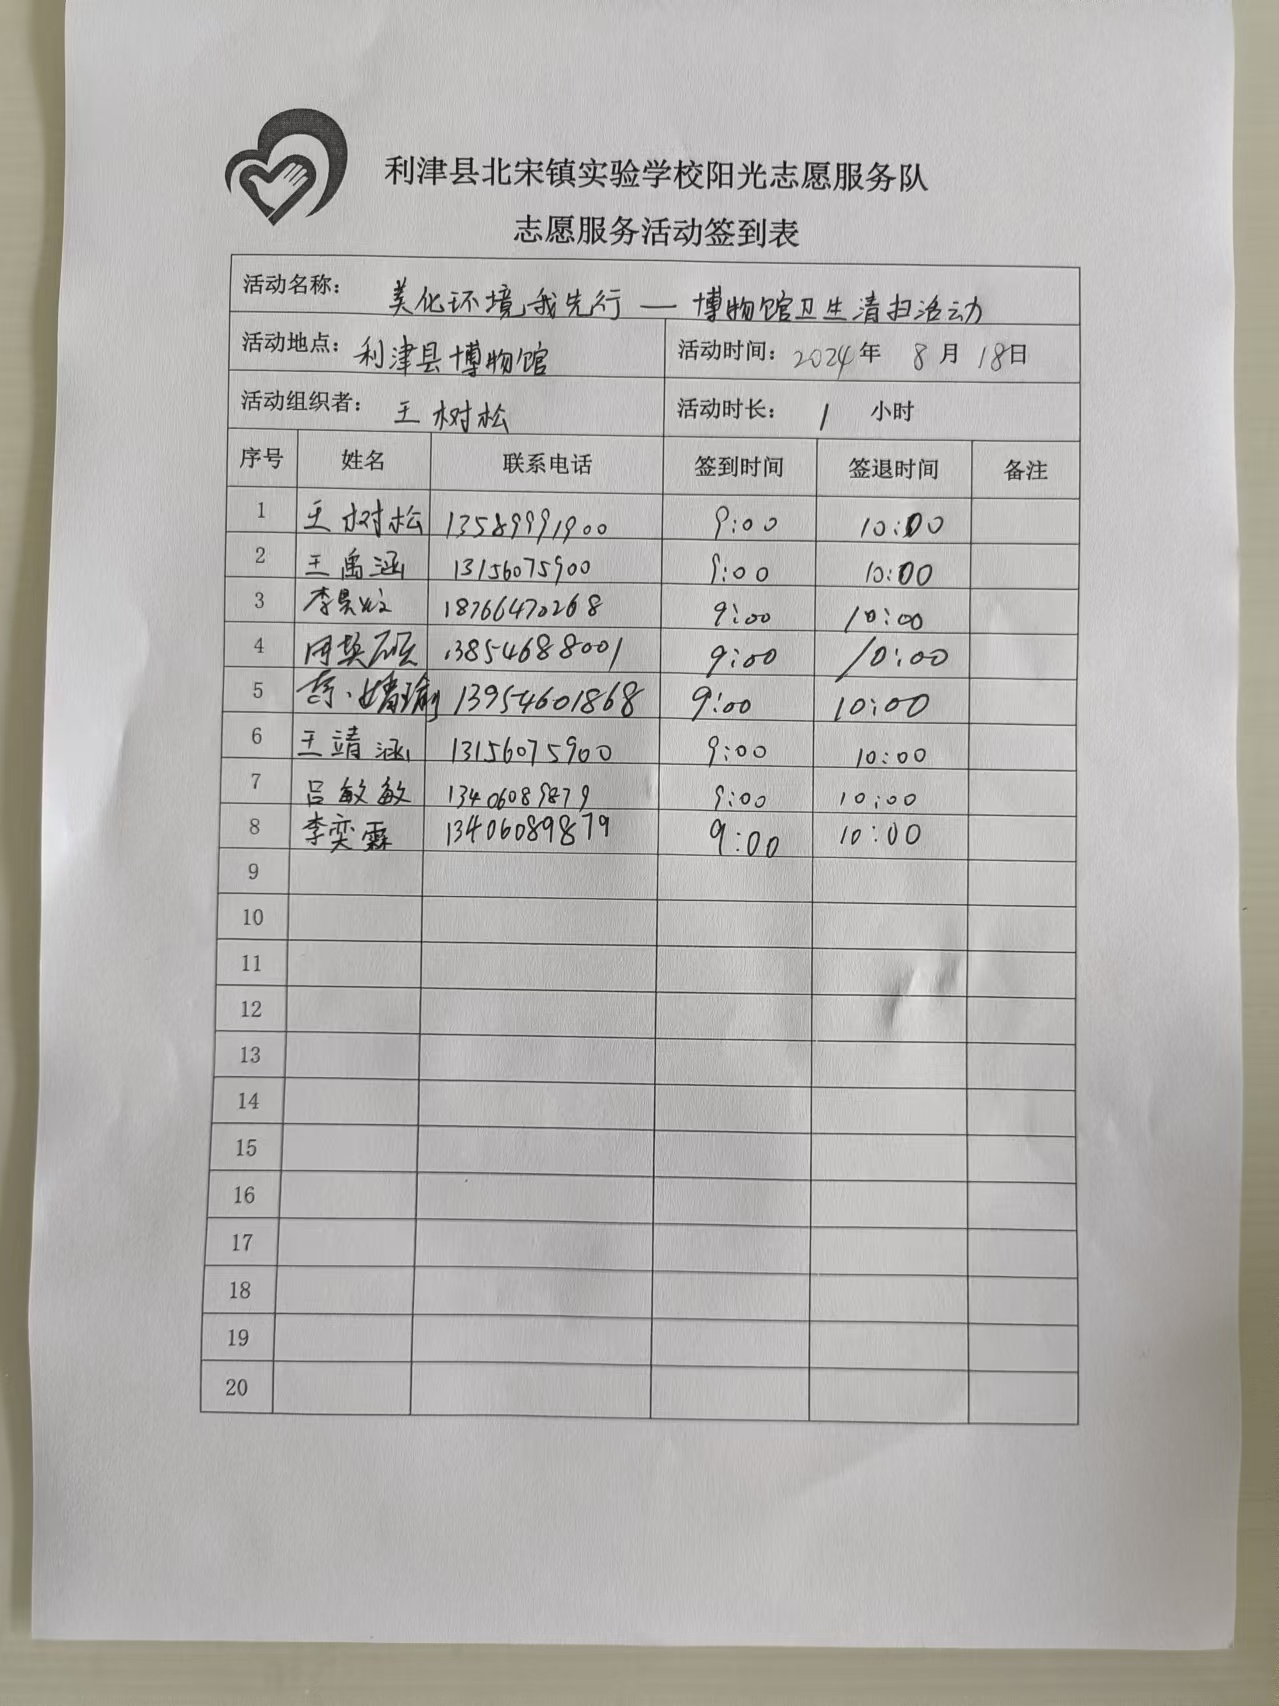 利津县北宋镇实验学校阳光志愿服务队
志愿服务活动签到表
活动名称： 美化环境我先行 — 博物馆卫生清扫活动
活动地点： 利津县博物馆 活动时间： 2024年 8月 18日
活动组织者： 王树松 活动时长： 1 小时
序号 姓名 联系电话 签到时间 签退时间 备注
1 王树松 13589991900 9:00 10:00
2 王禹涵 13156075900 9:00 10:00
3 18766470268 9:00 10:00
4 13854688001 9:00 10:00
5 13954601868 9:00 10:00
6 王靖涵 13156075900 9:00 10:00
7 吕敏敏 13406089879 9:00 10:00
8 李奕霖 13406089879 9:00 10:00
9
10
11
12
13
14
15
16
17
18
19
20